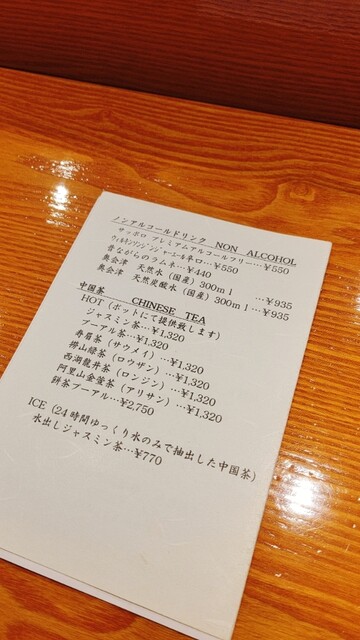 ノンアルコールドリンク NON ALCOHOL
サッポロ プレミアムアルコールフリー…¥550
ウィルキンソンジンジャーエール辛口…¥550
昔ながらのラムネ…¥440
奥会津 天然水（国産）300ml …¥935
奥会津 天然炭酸水（国産）300ml…¥935
中国茶 CHINESE TEA
HOT（ポットにて提供致します）
ジャスミン茶…¥1,320
プーアル茶…¥1,320
寿眉茶（サウメイ）…¥1,320
撈山緑茶（ロウザン）…¥1,320
西湖龍井茶（ロンジン）…¥1,320
阿里山金萱茶（アリサン）…¥1,320
餅茶プーアル…¥2,750
ICE（24時間ゆっくり水のみで抽出した中国茶）
水出しジャスミン茶…¥770